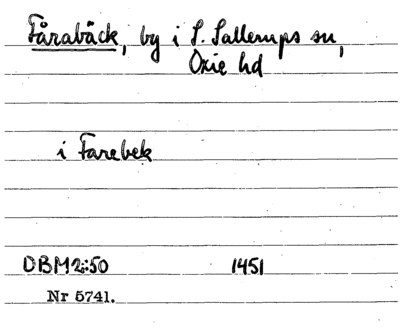 Fårabäck, by i S. Sallerups sn,
Oxie hd
i Farebek
DBM2:50 1451
Nr 5741.